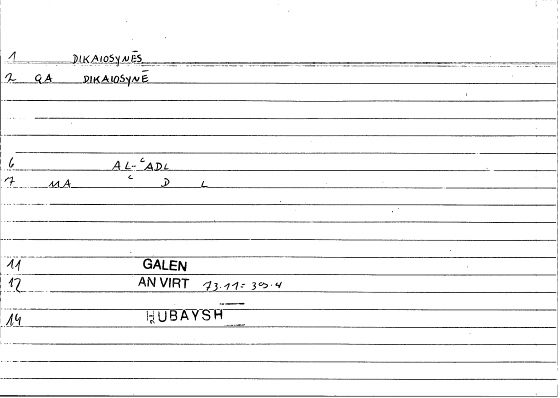 1 DIKAIOSYNĒS
2 QA DIKAIOSYNĒ
6 AL-ʿADL
7 MA ʿ D L
11 GALEN
12 AN VIRT 73.11 = 309.4
14 ḤUBAYSH